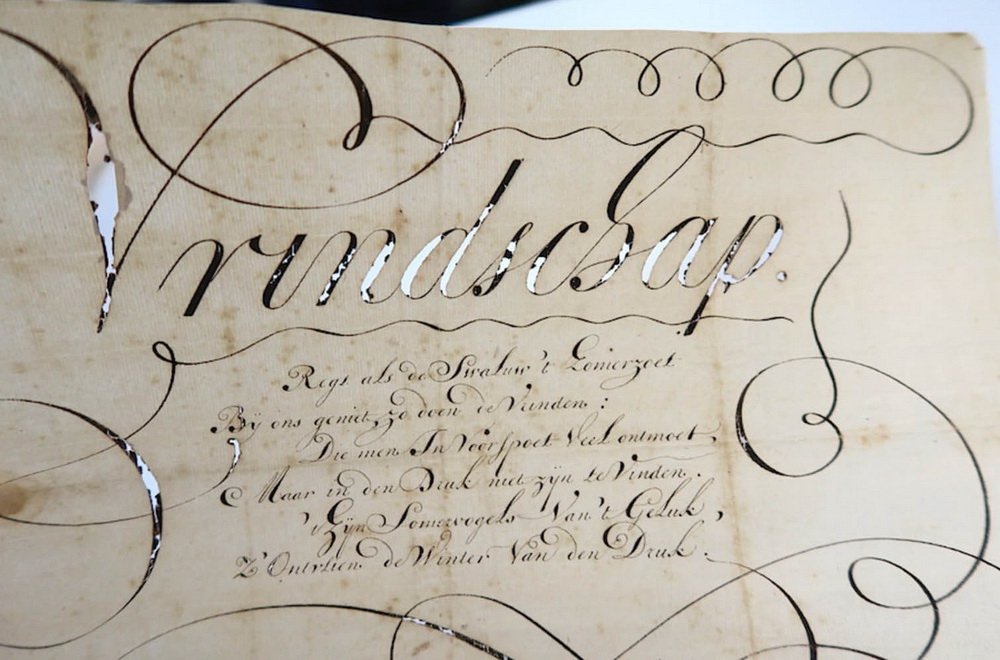 Vrindschap.
Regt als de Swaluw 't Zomerzoet
Bÿ ons geniet, zo doen de Vrinden:
Die men In Voorspoet Veel ontmoet,
Maar in den Druk niet zÿn te Vinden.
't Zÿn Somervogels Van 't Geluk,
Z'Ontvlien de Winter Van den Druk.